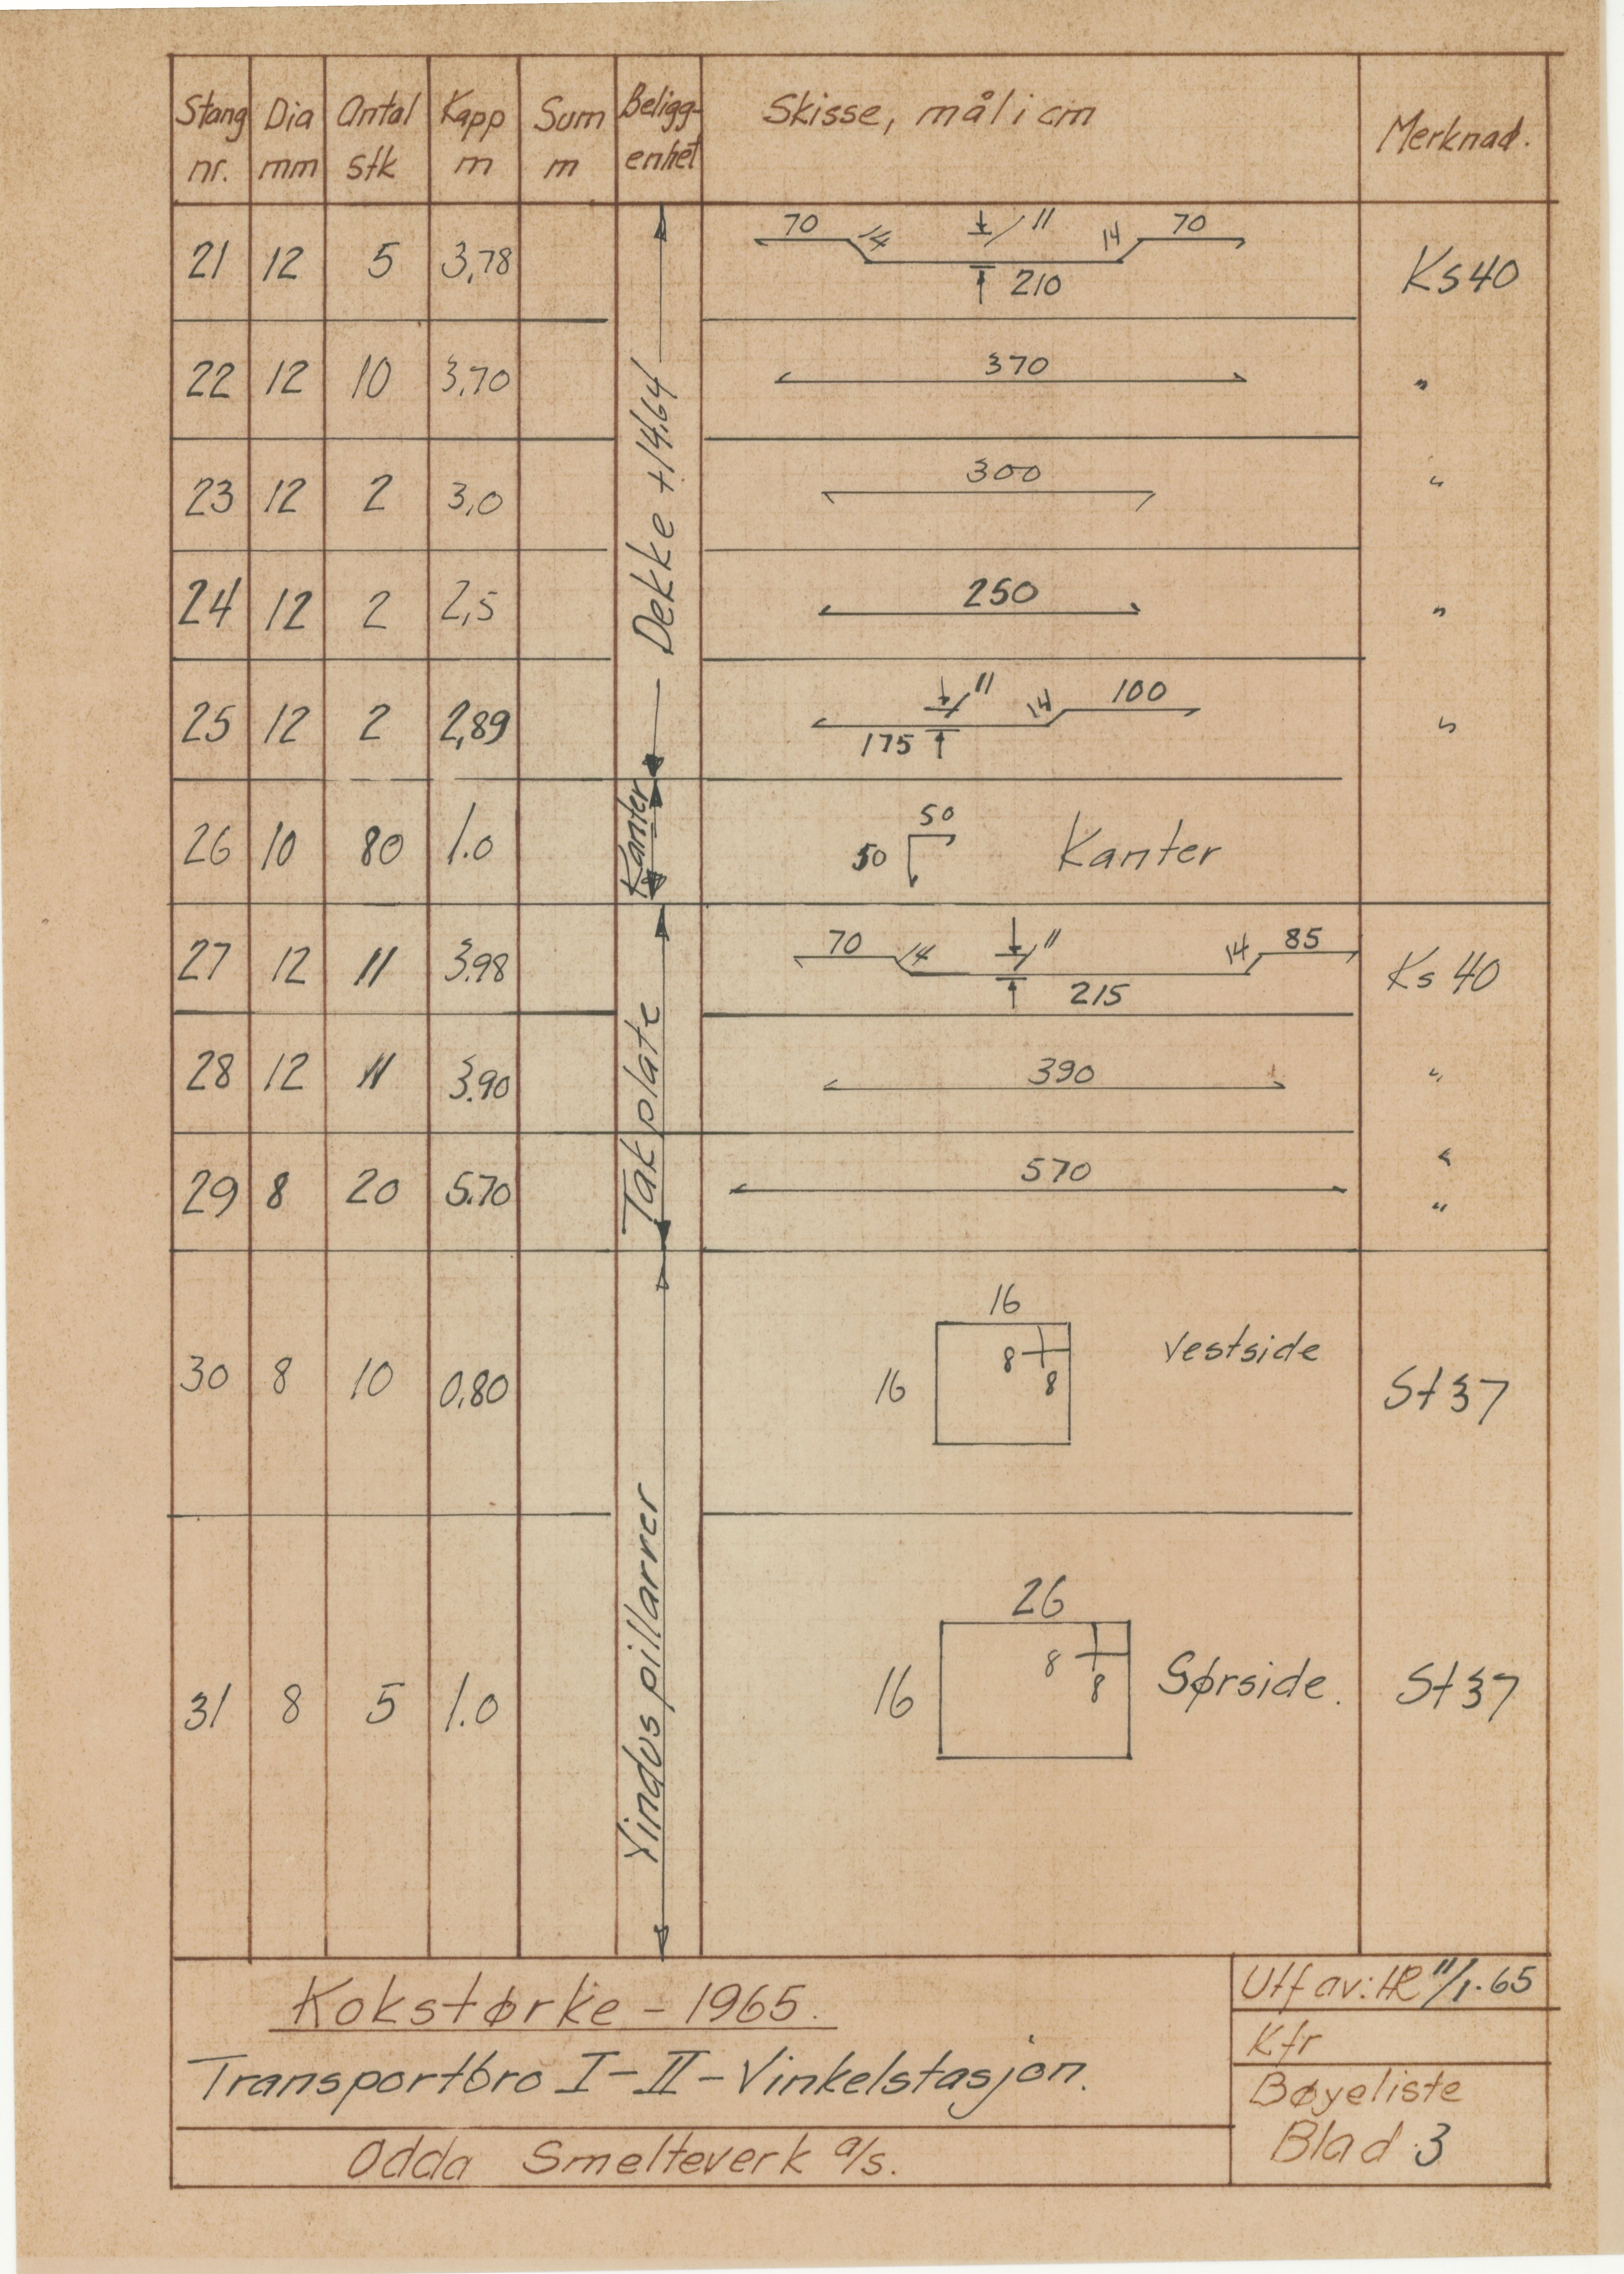 Stang Dia Antal Kapp Sum Beligg- Skisse, mål i cm Merknad.
nr. mm stk m m enhet
70 14 11 14 70
21 12 5 3,78 Ks 40
210
370
22 12 10 3,70 "
300
23 12 2 3,0 "
250
24 12 2 2,5 "
Dekke +14,64
11 14 100
25 12 2 2,89 "
175
50
26 10 80 1.0 50 Kanter
Kanter
70 14 11 14 85
27 12 11 3.98 Ks 40
215
28 12 11 3.90 390 "
570 "
29 8 20 5.70 "
Takplate
16
30 8 10 0,80 16 8 8 Vestside St 37
26
31 8 5 1.0 16 8 8 Sørside. St 37
Vinduspillarrer
Kokstørke - 1965.
Transportbro I-II-Vinkelstasjon.
Odda Smelteverk a/s.
Utf av: HR 11/1.65
Kfr
Bøyeliste
Blad 3